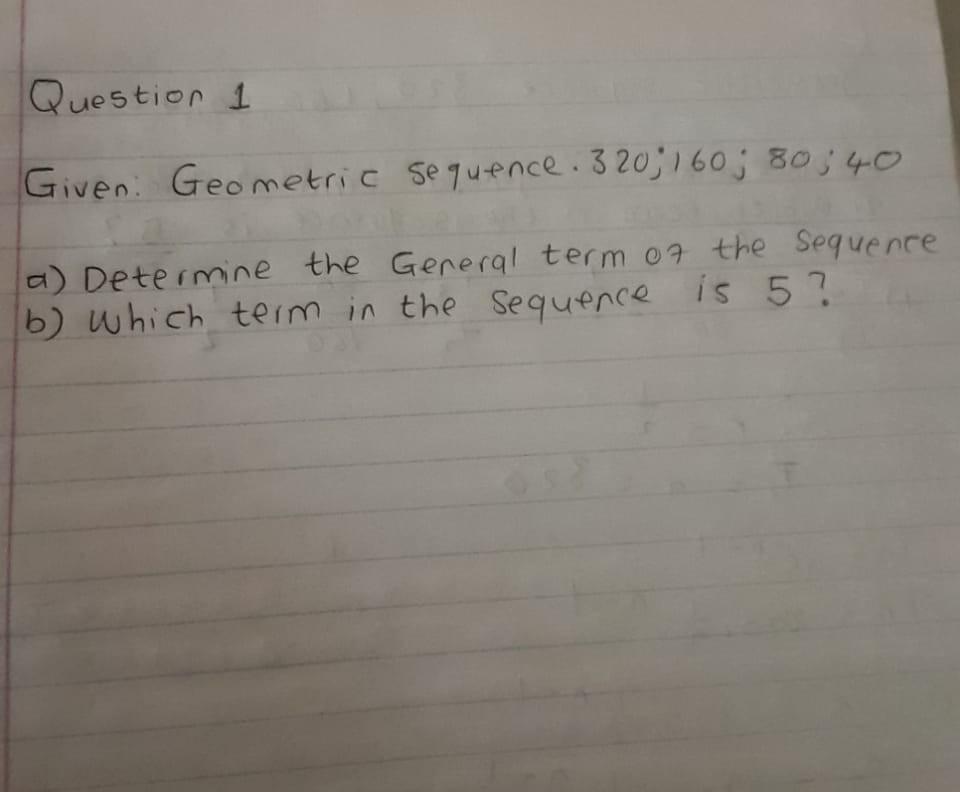 Question 1
Given: Geometric sequence. 320; 160; 80; 40
a) Determine the General term of the Sequence
b) Which term in the sequence is 5?